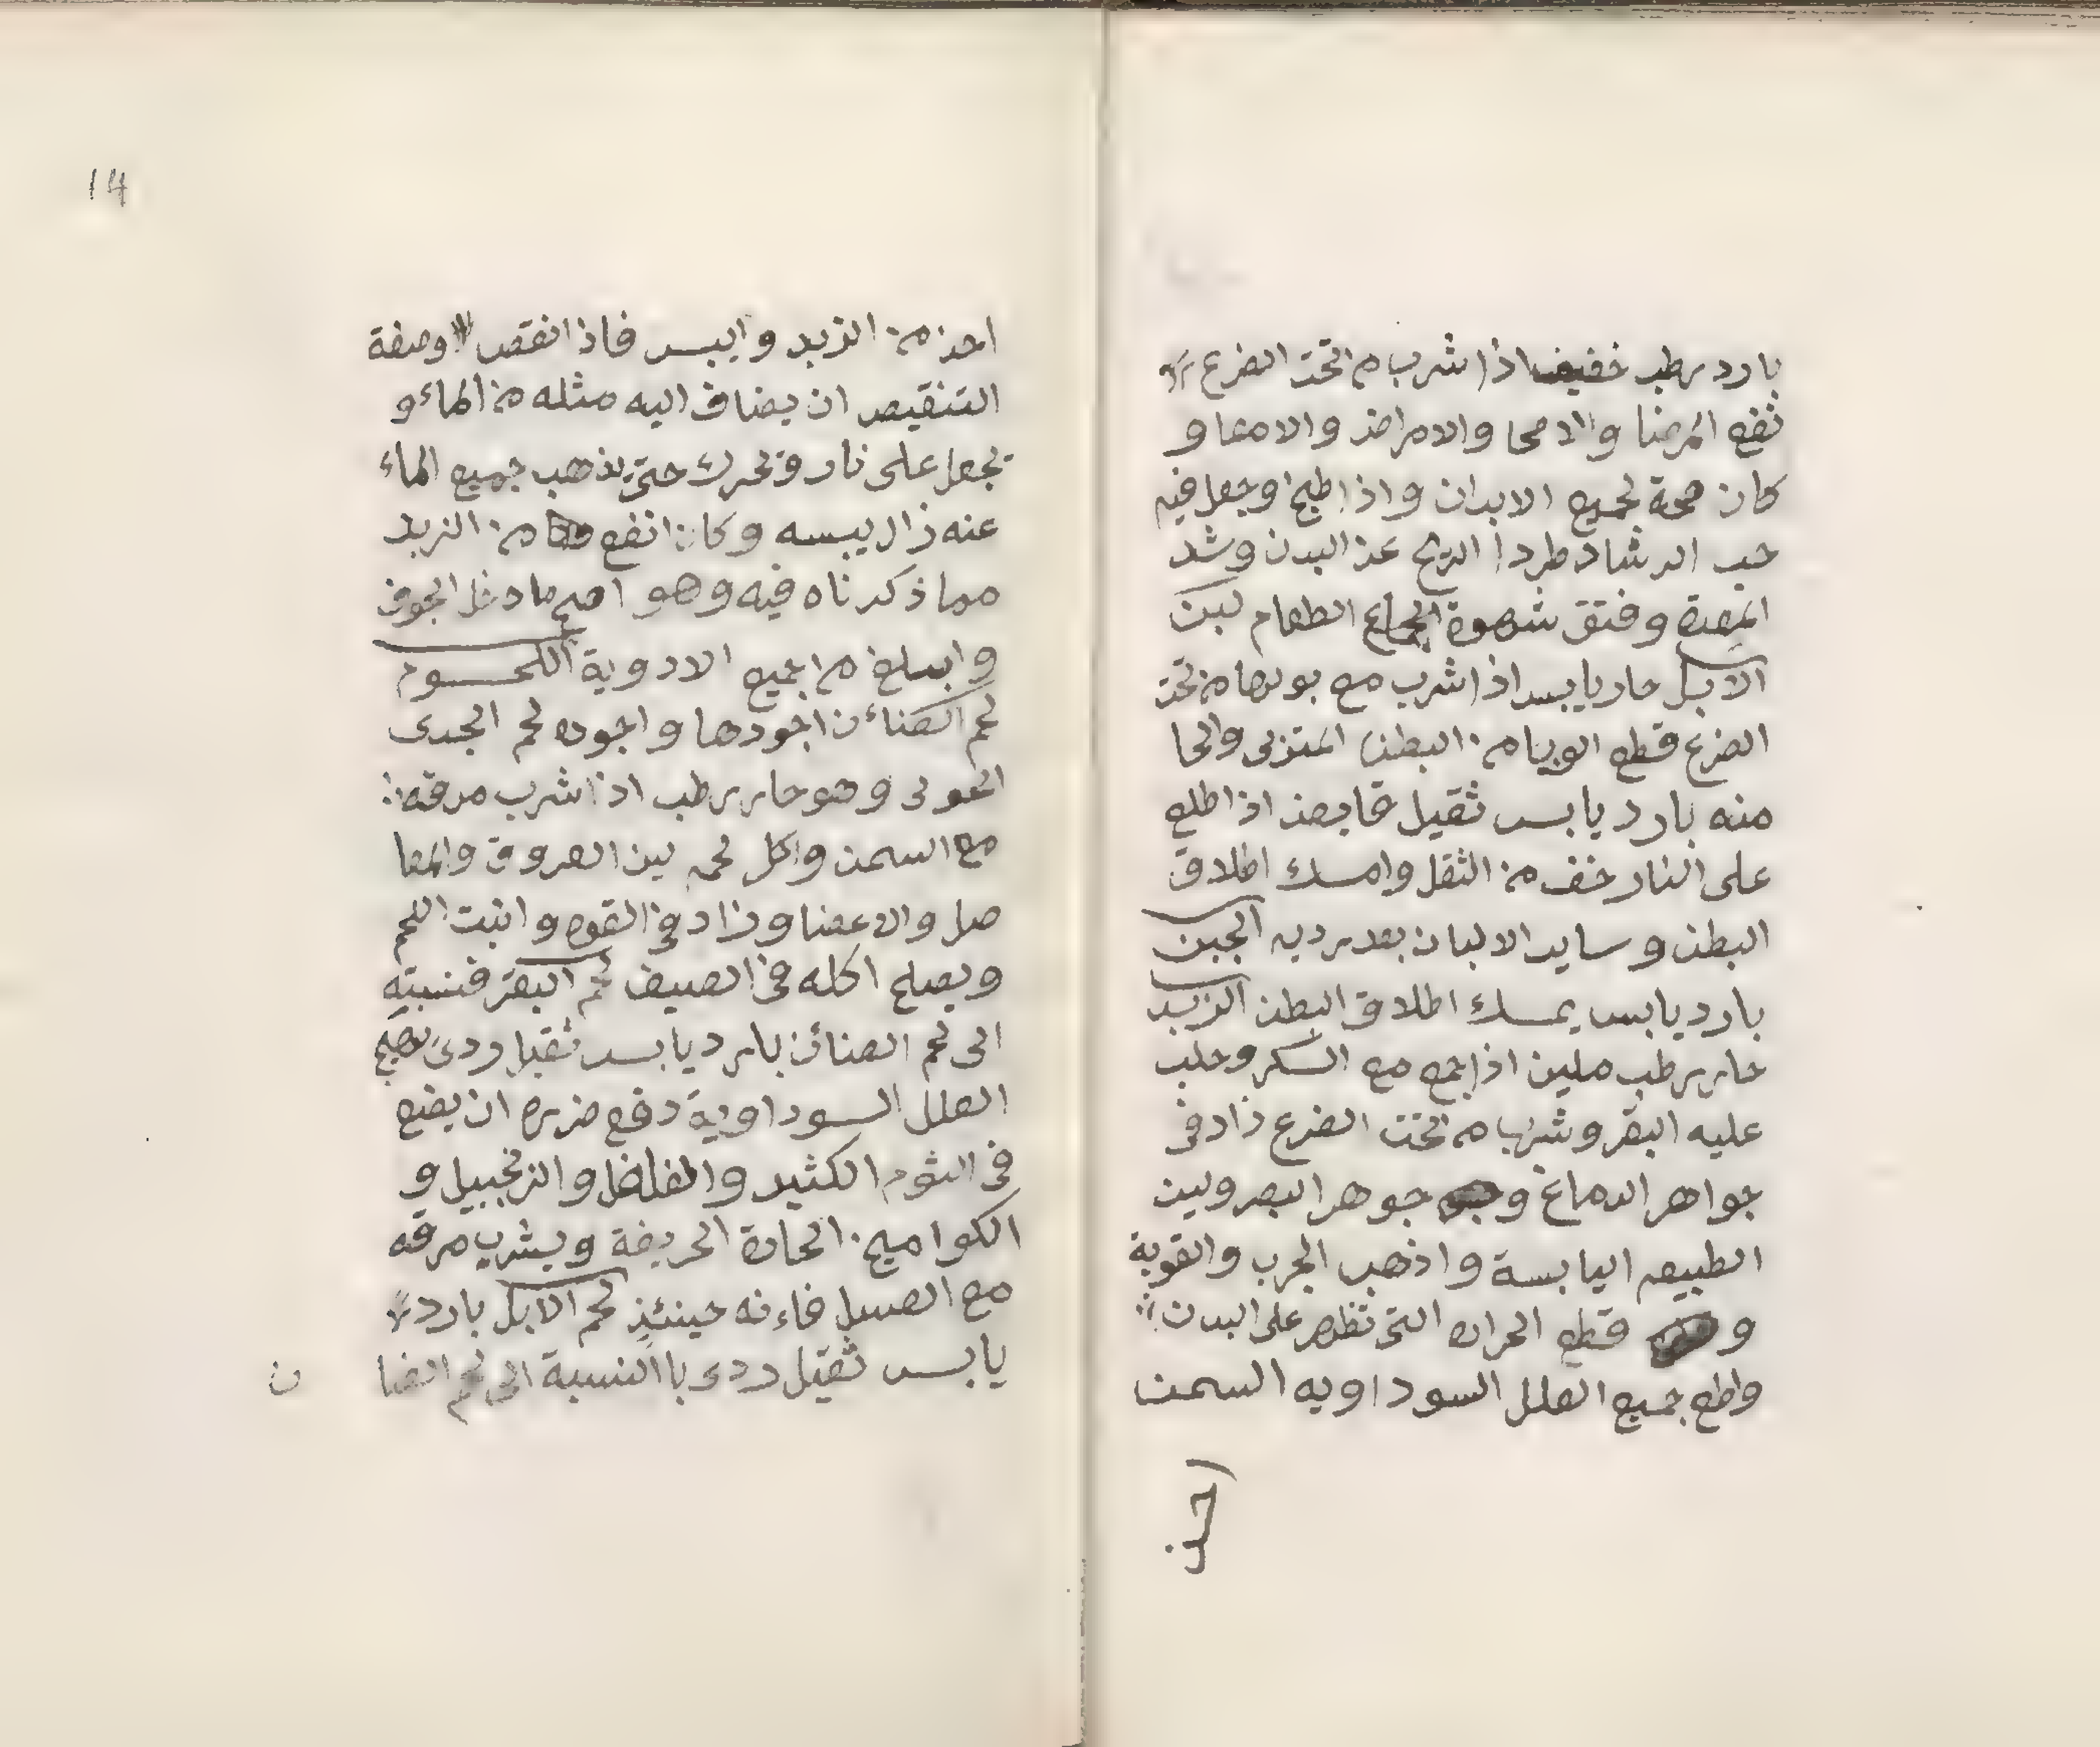 بارد رطب خفيف اذا شرب من تحت الضرع
نفع المرضا والاصحا والامراض والامعا و
كان صحة لجميع الابدان واذا طبخ اوجعل فيه
حب الرشاد طردا الريح عن البدن وشد
المعدة وفتق شهوة الجماع الطعام لبن
الابل حار يابس اذا شرب مع بولها من تحت
الضرع قطع الوبا من البطن
منه بارد يابس ثقيل قابض اذا طلع
على النار خف من الثقل وامسك اطلاق
البطن وساير الالبان بعد رديه الجبن
بارد يابس يمسك اطلاق البطن الزبد
حار رطب ملين اذا جمع مع السكر وحلب
عليه البقر وشربا من تحت الضرع زاد في
جواهر الدماغ و جوهر البصر ولين
الطبيعه اليابسة واذهب الجرب والقوبة
و قطع الحراره التي تظهر على البدن
واطع جميع العلل السوداويه السمن
احن
14
احر من الزبد وايبس فاذا انقص وصفة
التنقيص ان يضاف اليه مثله من الماء و
تجعل على نار وتحرك حتى يذهب جميع الماء
عنه زال يبسه وكان انفع من الزبد
مما ذكرناه فيه وهو اصح ما دخل الجوف
وابلغ من جميع الادوية اللحوم
لحم الضنائن اجودها واجوده لحم الجدى
الحولى وهو حار رطب اذا شرب مرقه
مع السمن واكل لحمه لين العروق والمفا
صل والاعضا وزاد في القوه وانبت اللحم
ويصلح اكله في الصيف لحم البقر فنسبته
الى لحم الضنائن بارد يابس ثقيل ردى يهيج
العلل السوداوية دفع ضرره ان يضع
فى الثوم الكثير والفلفل والزنجبيل و
الكواميح الحادة الحريفة ويشرب مرقه
مع العسل فاءنه حينئذ لحم الابل بارد
يابس ثقيل ردى باالنسبة الى لحم الضا
ن